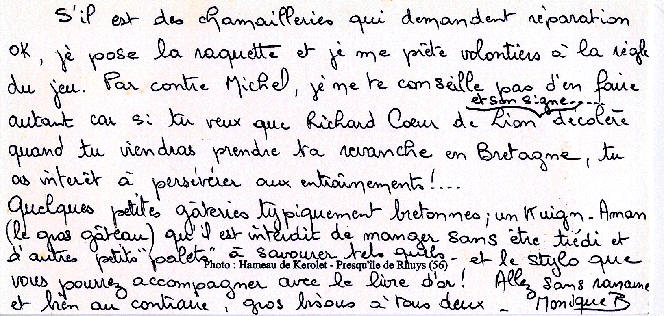 S'il est des chamailleries qui demandent réparation
OK, je pose la raquette et je me prête volontiers à la règle
du jeu. Par contre Michel, je ne te conseille pas d'en faire
et son signe....
autant car si tu veux que Richard Cœur de Lion décolère
quand tu viendras prendre ta revanche en Bretagne, tu
as intérêt à persévérer aux entraînements !...
Quelques petites gâteries typiquement bretonnes ; un Kuign-Aman
(le gros gâteau) qu'il est interdit de manger sans être tiédi et
d'autres petits "palets" à savourer tels quels - et le stylo que
Photo : Hameau de Kerolet - Presqu'île de Rhuys (56)
vous pourrez accompagner avec le livre d'or ! Allez sans rancune
et bien au contraire, gros bisous à tous deux - Monique B